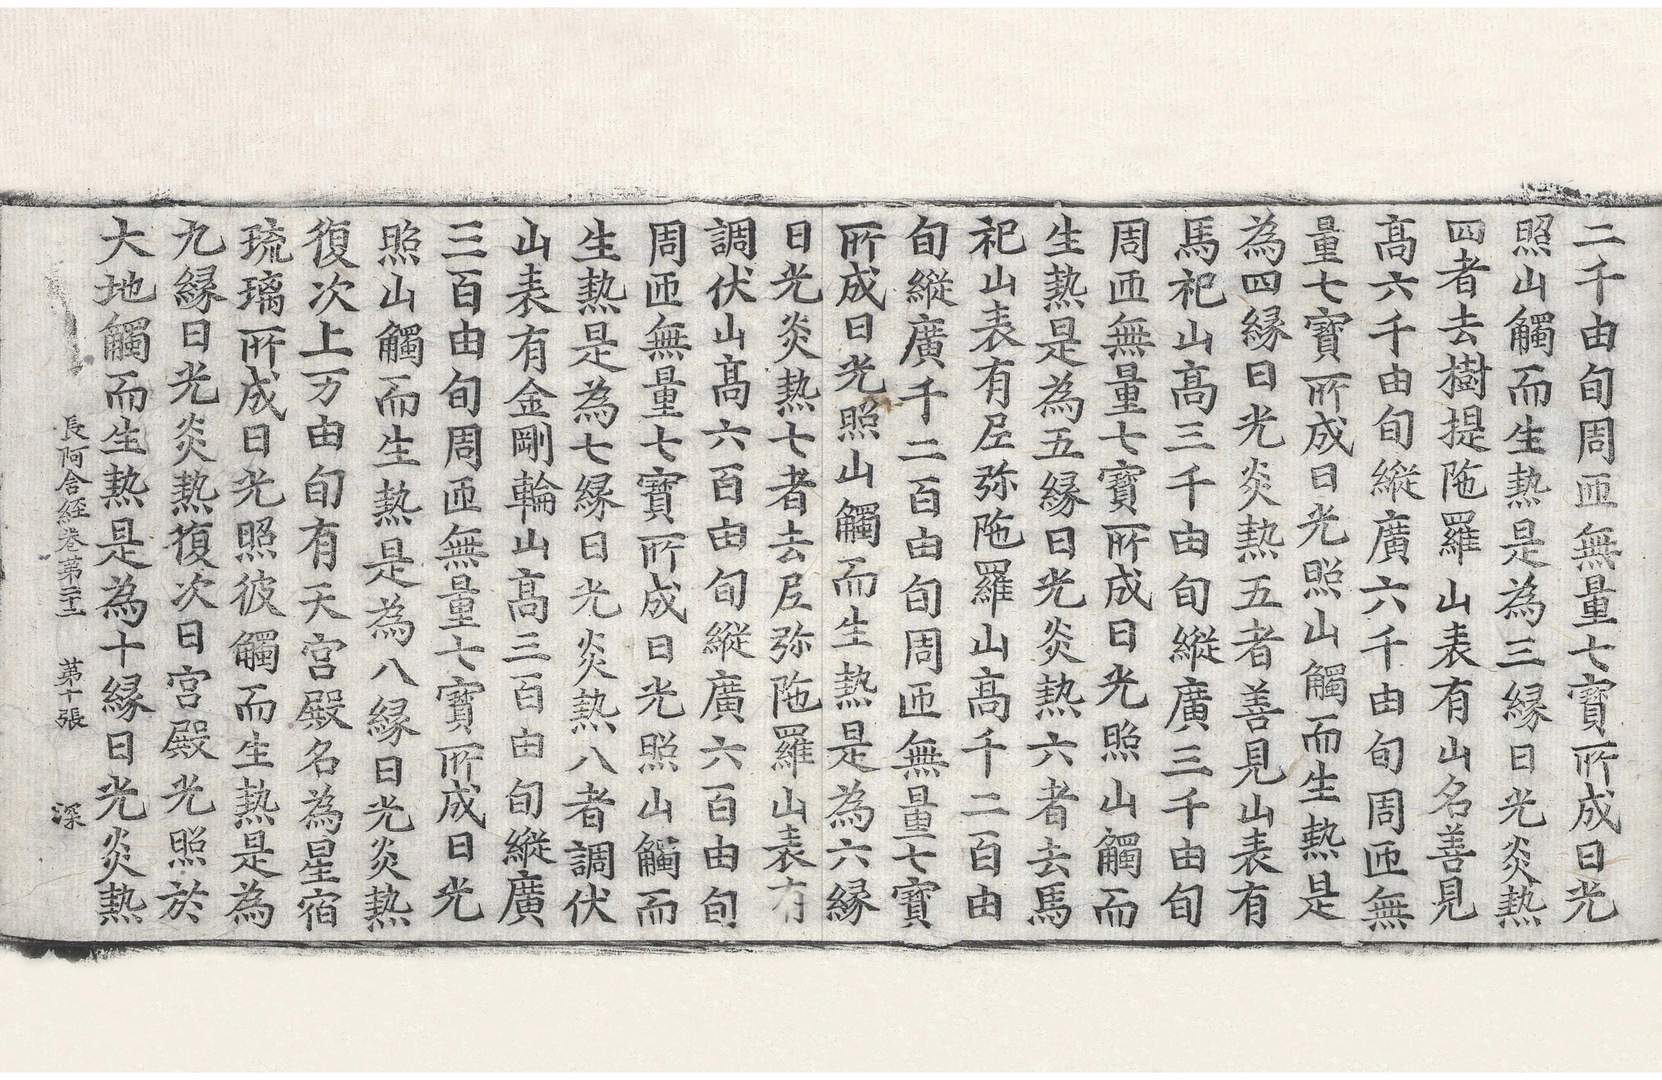 二千由旬周匝無量七寶所成日光
照山觸而生熱是為三緣日光炎熱
四者去樹提陁羅山表有山名善見
高六千由旬縱廣六千由旬周匝無
量七寶所成日光照山觸而生熱是
為四緣日光炎熱五者善見山表有
馬祀山高三千由旬縱廣三千由旬
周匝無量七寶所成日光照山觸而
生熱是為五緣日光炎熱六者去馬
祀山表有尼弥陁羅山高千二百由
旬縱廣千二百由旬周匝無量七寶
所成日光照山觸而生熱是為六緣
日光炎熱七者去尼弥陁羅山表有
調伏山高六百由旬縱廣六百由旬
周匝無量七寶所成日光照山觸而
生熱是為七緣日光炎熱八者調伏
山表有金剛輪山高三百由旬縱廣
三百由旬周匝無量七寶所成日光
照山觸而生熱是為八緣日光炎熱
復次上万由旬有天宮殿名為星宿
琉璃所成日光照彼觸而生熱是為
九緣日光炎熱復次日宮殿光照於
大地觸而生熱是為十緣日光炎熱
長阿含經卷第二十二 第十張 深